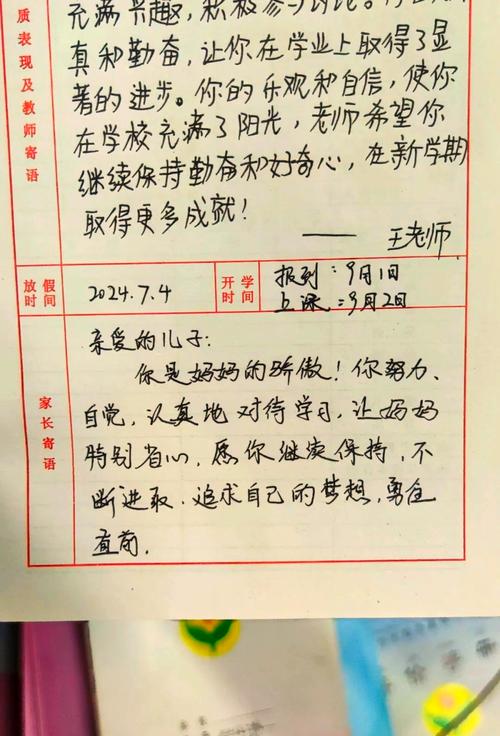 充满兴趣，积极参与讨论。
真和勤奋，让你在学业上取得了显
著的进步。你的乐观和自信，使你
在学校充满了阳光，老师希望你
继续保持勤奋和好奇心，在新学期
取得更多成就！
—— 王老师
质表现及教师寄语
放假时间
2024.7.4
开学时间
报到：9月1日
上课：9月2日
家长寄语
亲爱的儿子：
你是妈妈的骄傲！你努力、
自觉，认真地对待学习，让妈妈
特别省心，愿你继续保持，不
断进取，追求自己的梦想，勇往
直前。